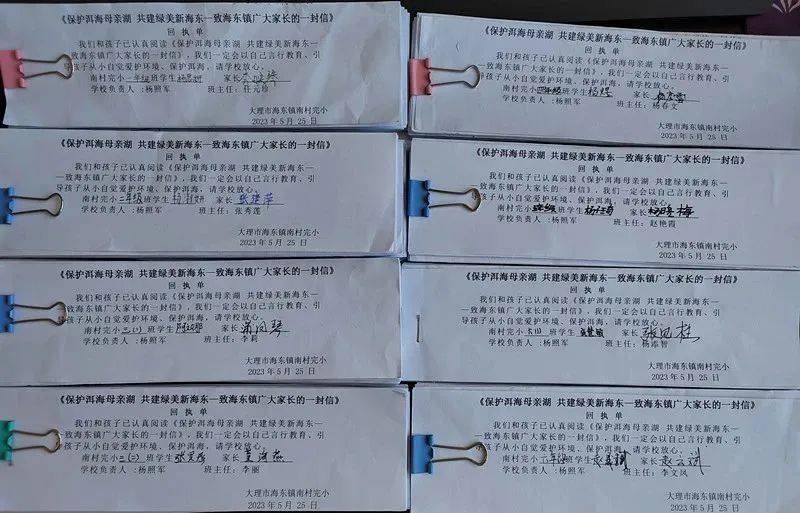 《保护洱海母亲湖 共建绿美新海东—致海东镇广大家长的一封信》
回 执 单
我们和孩子已认真阅读《保护洱海母亲湖 共建绿美新海东—
—致海东镇广大家长的一封信》，我们一定会以自己言行教育、引
导孩子从小自觉爱护环境、保护洱海，请学校放心。
南村完小一年级班学生 家长
学校负责人：杨照军 班主任：任元珍
大理市海东镇南村完小
2023 年 5 月 25 日
《保护洱海母亲湖 共建绿美新海东—致海东镇广大家长的一封信》
回 执 单
我们和孩子已认真阅读《保护洱海母亲湖 共建绿美新海东—
—致海东镇广大家长的一封信》，我们一定会以自己言行教育、引
导孩子从小自觉爱护环境、保护洱海，请学校放心。
南村完小二年级班学生 家长 张建萍
学校负责人：杨照军 班主任：张秀莲
大理市海东镇南村完小
2023 年 5 月 25 日
《保护洱海母亲湖 共建绿美新海东—致海东镇广大家长的一封信》
回 执 单
我们和孩子已认真阅读《保护洱海母亲湖 共建绿美新海东—
—致海东镇广大家长的一封信》，我们一定会以自己言行教育、引
导孩子从小自觉爱护环境、保护洱海，请学校放心。
南村完小三(1)班学生 家长
学校负责人：杨照军 班主任：李莉
大理市海东镇南村完小
2023 年 5 月 25 日
《保护洱海母亲湖 共建绿美新海东—致海东镇广大家长的一封信》
回 执 单
我们和孩子已认真阅读《保护洱海母亲湖 共建绿美新海东—
—致海东镇广大家长的一封信》，我们一定会以自己言行教育、引
导孩子从小自觉爱护环境、保护洱海，请学校放心。
南村完小三(二)班学生 家长
学校负责人：杨照军 班主任：李丽
大理市海东镇南村完小
2023 年 5 月 25 日
《保护洱海母亲湖 共建绿美新海东—致海东镇广大家长的一封信》
回 执 单
我们和孩子已认真阅读《保护洱海母亲湖 共建绿美新海东—
—致海东镇广大家长的一封信》，我们一定会以自己言行教育、引
导孩子从小自觉爱护环境、保护洱海，请学校放心。
南村完小四年级班学生 家长
学校负责人：杨照军 班主任：杨春文
大理市海东镇南村完小
2023 年 5 月 25 日
《保护洱海母亲湖 共建绿美新海东—致海东镇广大家长的一封信》
回 执 单
我们和孩子已认真阅读《保护洱海母亲湖 共建绿美新海东—
—致海东镇广大家长的一封信》，我们一定会以自己言行教育、引
导孩子从小自觉爱护环境、保护洱海，请学校放心。
南村完小 班学生 家长
学校负责人：杨照军 班主任：赵艳霞
大理市海东镇南村完小
2023 年 5 月 25 日
《保护洱海母亲湖 共建绿美新海东—致海东镇广大家长的一封信》
回 执 单
我们和孩子已认真阅读《保护洱海母亲湖 共建绿美新海东—
—致海东镇广大家长的一封信》，我们一定会以自己言行教育、引
导孩子从小自觉爱护环境、保护洱海，请学校放心。
南村完小 六(1) 班学生 家长 张四桂
学校负责人：杨照军 班主任：杨添智
大理市海东镇南村完小
2023 年 5 月 25 日
《保护洱海母亲湖 共建绿美新海东—致海东镇广大家长的一封信》
回 执 单
我们和孩子已认真阅读《保护洱海母亲湖 共建绿美新海东—
—致海东镇广大家长的一封信》，我们一定会以自己言行教育、引
导孩子从小自觉爱护环境、保护洱海，请学校放心。
南村完小 班学生 家长
学校负责人：杨照军 班主任：李文凤
大理市海东镇南村完小
2023 年 5 月 25 日